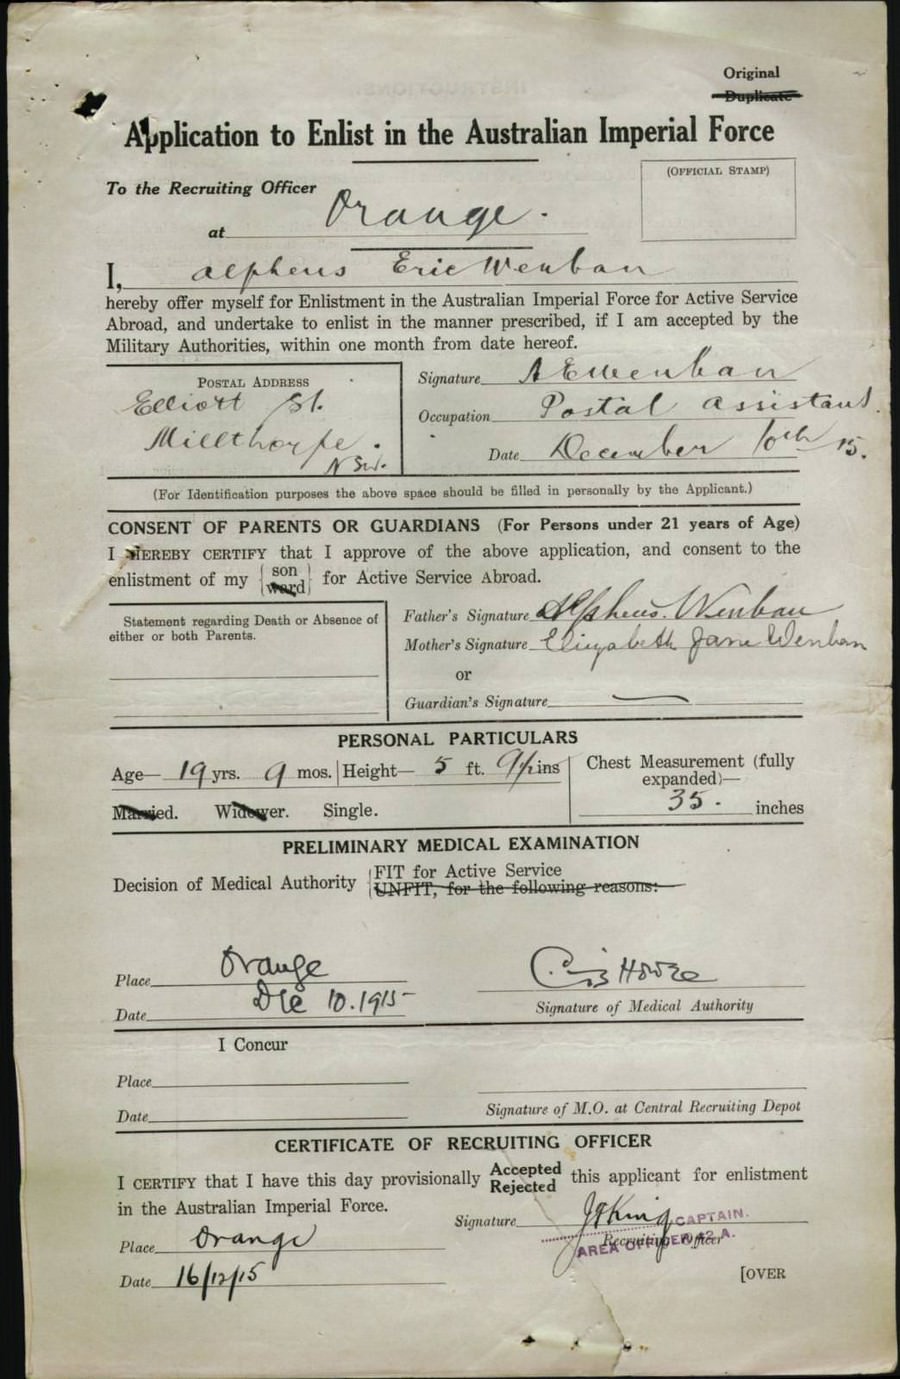 Original
Duplicate
Application to Enlist in the Australian Imperial Force
(OFFICIAL STAMP)
To the Recruiting Officer
at Orange.
I, Alpheus Eric Wenban
hereby offer myself for Enlistment in the Australian Imperial Force for Active Service
Abroad, and undertake to enlist in the manner prescribed, if I am accepted by the
Military Authorities, within one month from date hereof.
POSTAL ADDRESS
Elliott St.
Millthorpe.
NSW.
Signature A E Wenban
Occupation Postal Assistant.
Date December 10th 15.
(For Identification purposes the above space should be filled in personally by the Applicant.)
CONSENT OF PARENTS OR GUARDIANS (For Persons under 21 years of Age)
I HEREBY CERTIFY that I approve of the above application, and consent to the
enlistment of my { son ward } for Active Service Abroad.
Statement regarding Death or Absence of
either or both Parents.
Father's Signature Alpheus. Wenban
Mother's Signature Elizabeth Jane Wenban
or
Guardian's Signature
PERSONAL PARTICULARS
Age— 19 yrs. 9 mos. Height— 5 ft. 9½ ins
Chest Measurement (fully
expanded)—
35. inches
Married. Widower. Single.
PRELIMINARY MEDICAL EXAMINATION
Decision of Medical Authority
FIT for Active Service
UNFIT, for the following reasons:
Place Orange
Date Dec 10.1915
Signature of Medical Authority
I Concur
Place
Date
Signature of M.O. at Central Recruiting Depot
CERTIFICATE OF RECRUITING OFFICER
I CERTIFY that I have this day provisionally Accepted Rejected this applicant for enlistment
in the Australian Imperial Force.
Signature J King CAPTAIN.
Recruiting Officer
AREA OFFICER 42 A.
Place Orange
Date 16/12/15
[OVER